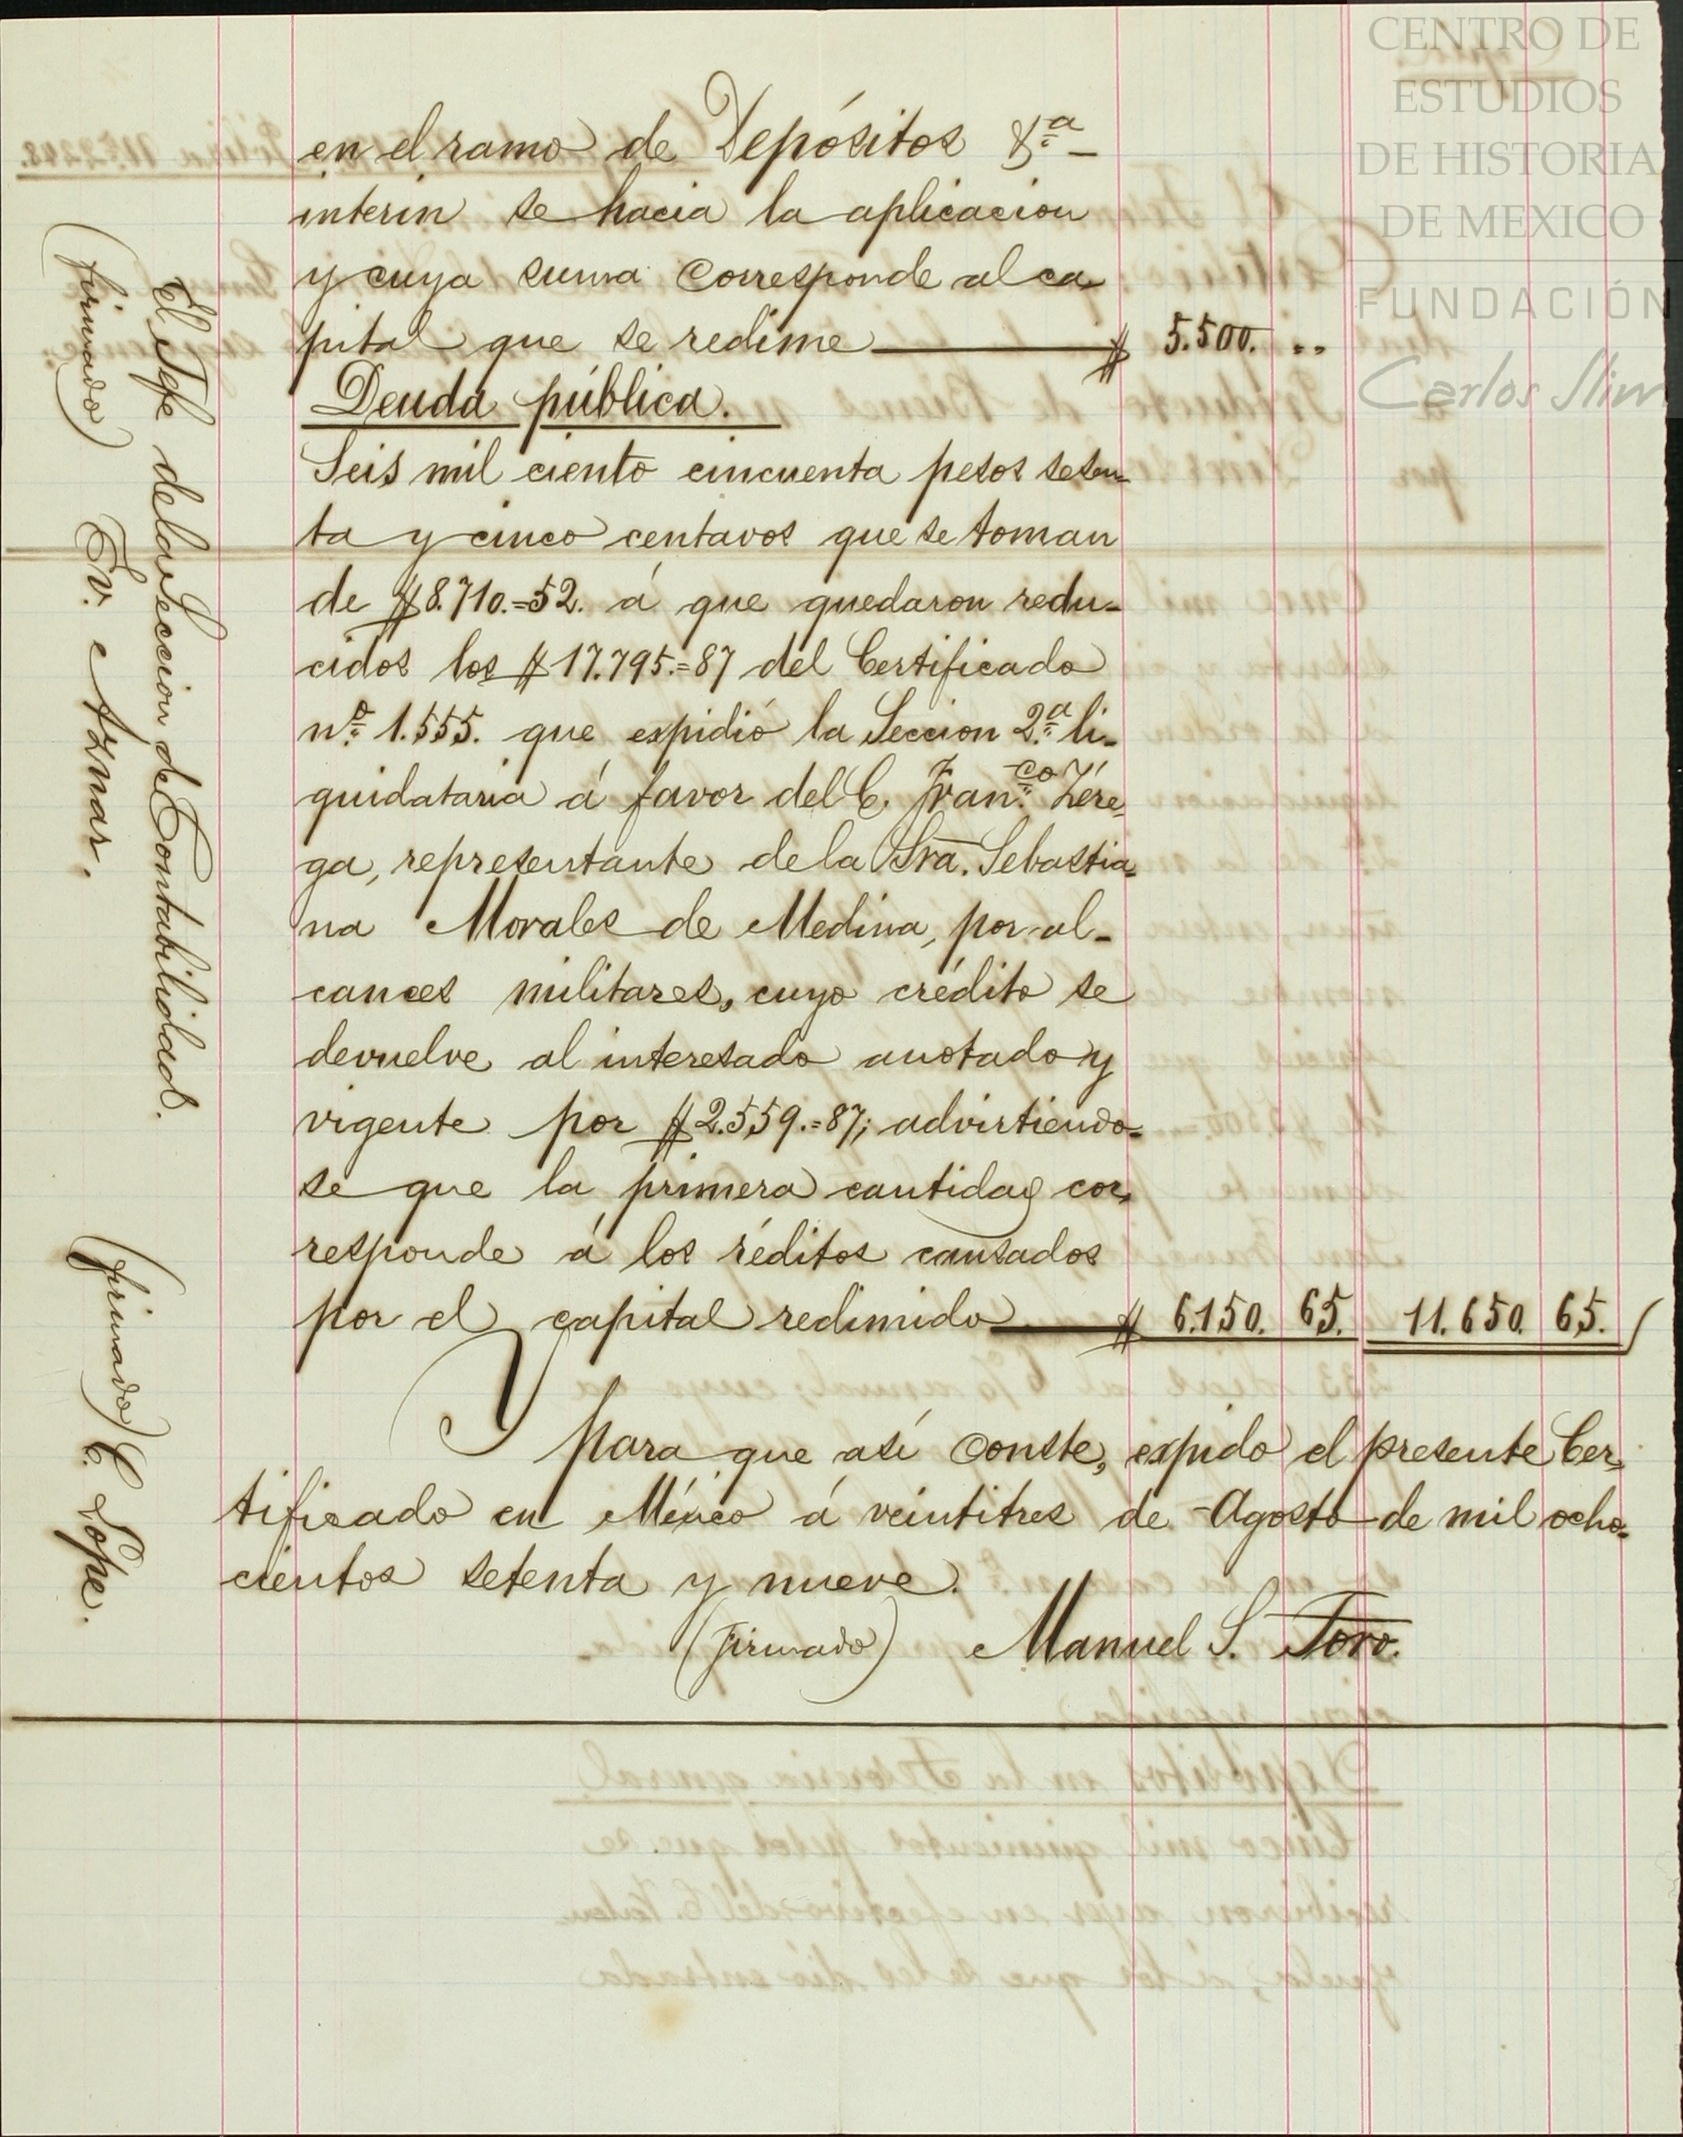 CENTRO DE
ESTUDIOS
DE HISTORIA
DE MEXICO
FUNDACIÓN
Carlos Slim
en el ramo de Depósitos &.ª
interin se hacia la aplicacion
y cuya suma corresponde al ca-
pital que se redime $ 5.500. ..
Deuda pública.
Seis mil ciento cincuenta pesos seten-
ta y cinco centavos que se toman
de $8.710.=52. á que quedaron redu-
cidos los $17.795.=87 del Certificado
n.º 1.555. que expidió la Seccion 2.ª li-
quidataria á favor del C. Fran.co Zére-
ga, representante de la Sra. Sebastia-
na Morales de Medina, por al-
cances militares, cuyo crédito se
devuelve al interesado anotado y
vigente por $2.559.=87; advirtiendo-
se que la primera cantidad cor-
responde á los réditos causados
por el capital redimido $ 6.150. 65. 11.650. 65.
Y para que asi conste, expido el presente Cer-
tificado en México á veintitres de Agosto de mil ocho-
cientos setenta y nueve.
(firmado) Manuel S. Toro.
El Jefe de la Seccion de Contabilidad.
(firmado) Ev. Aznar.
(firmado) C. Lope.